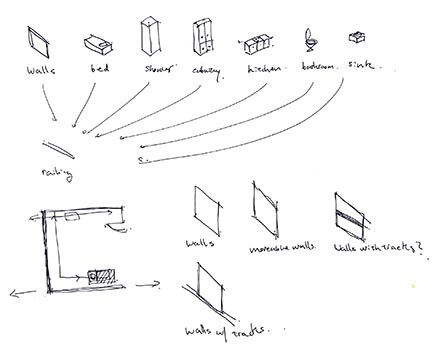 walls bed shower cabinetry kitchen. bathroom. sink
railing
walls moveable walls. Walls with tracks?
walls w/ tracks.